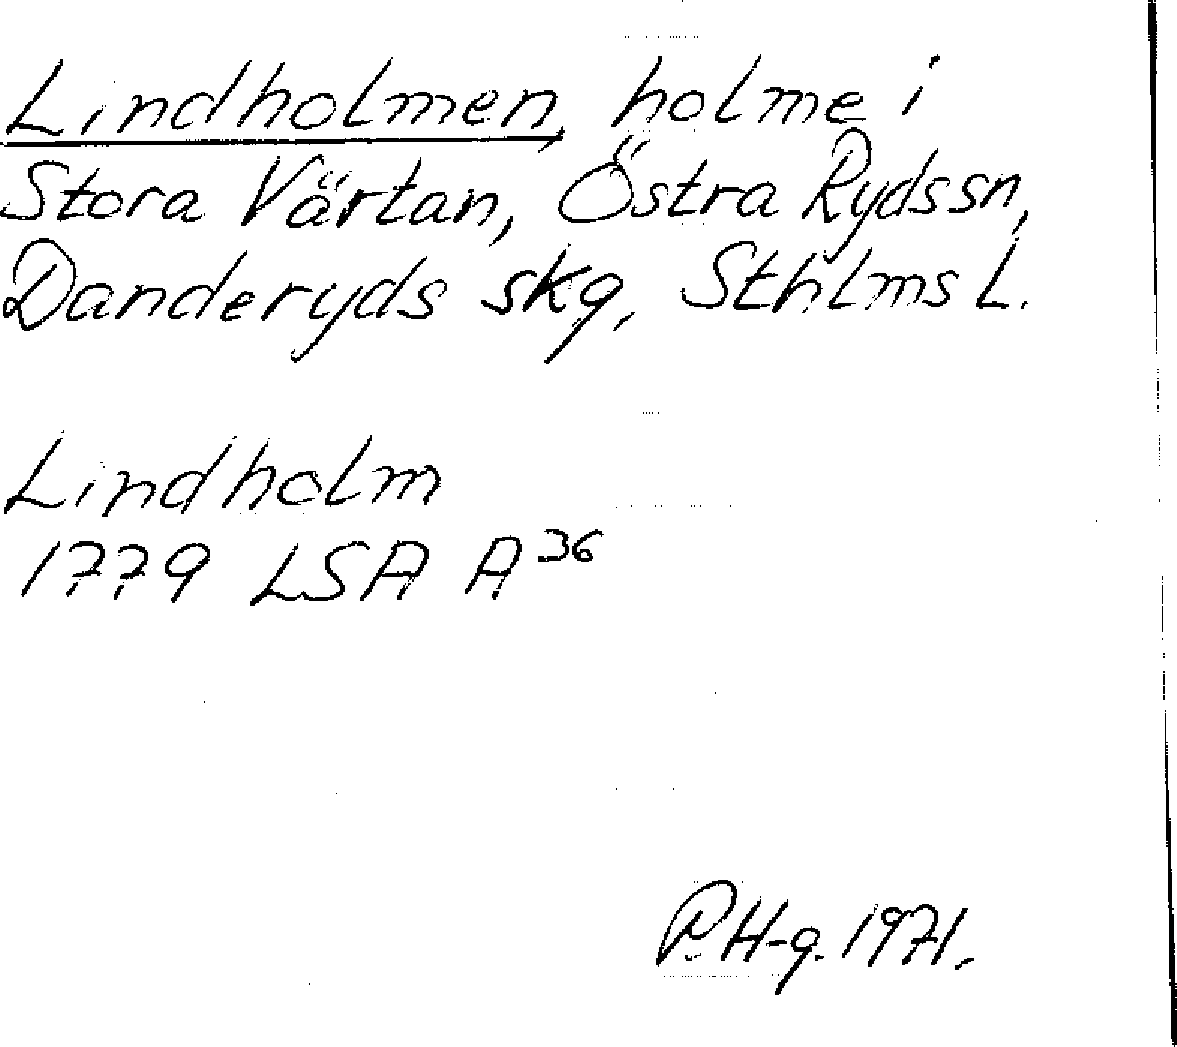 Lindholmen, holme i
Stora Värtan, Östra Ryds sn,
Danderyds skg, Sthlms l.
Lindholm
1779 LSA A36
P.H-g. 1971.